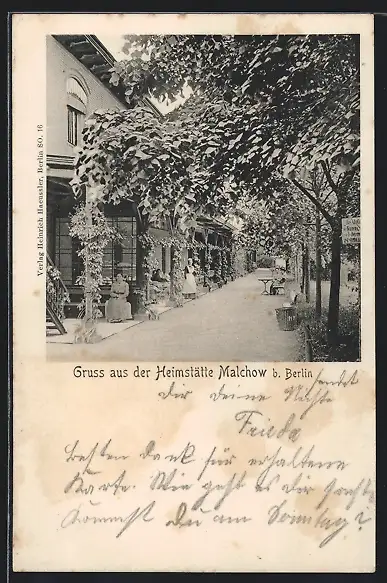 Verlag Heinrich Haeussler, Berlin SO. 16
Gruss aus der Heimstätte Malchow b. Berlin
sendet
Dir deine Nichte
Frieda
Besten Dank für erhaltene
Karte. Wie geht es dir
Kommst Du am Sonntag?